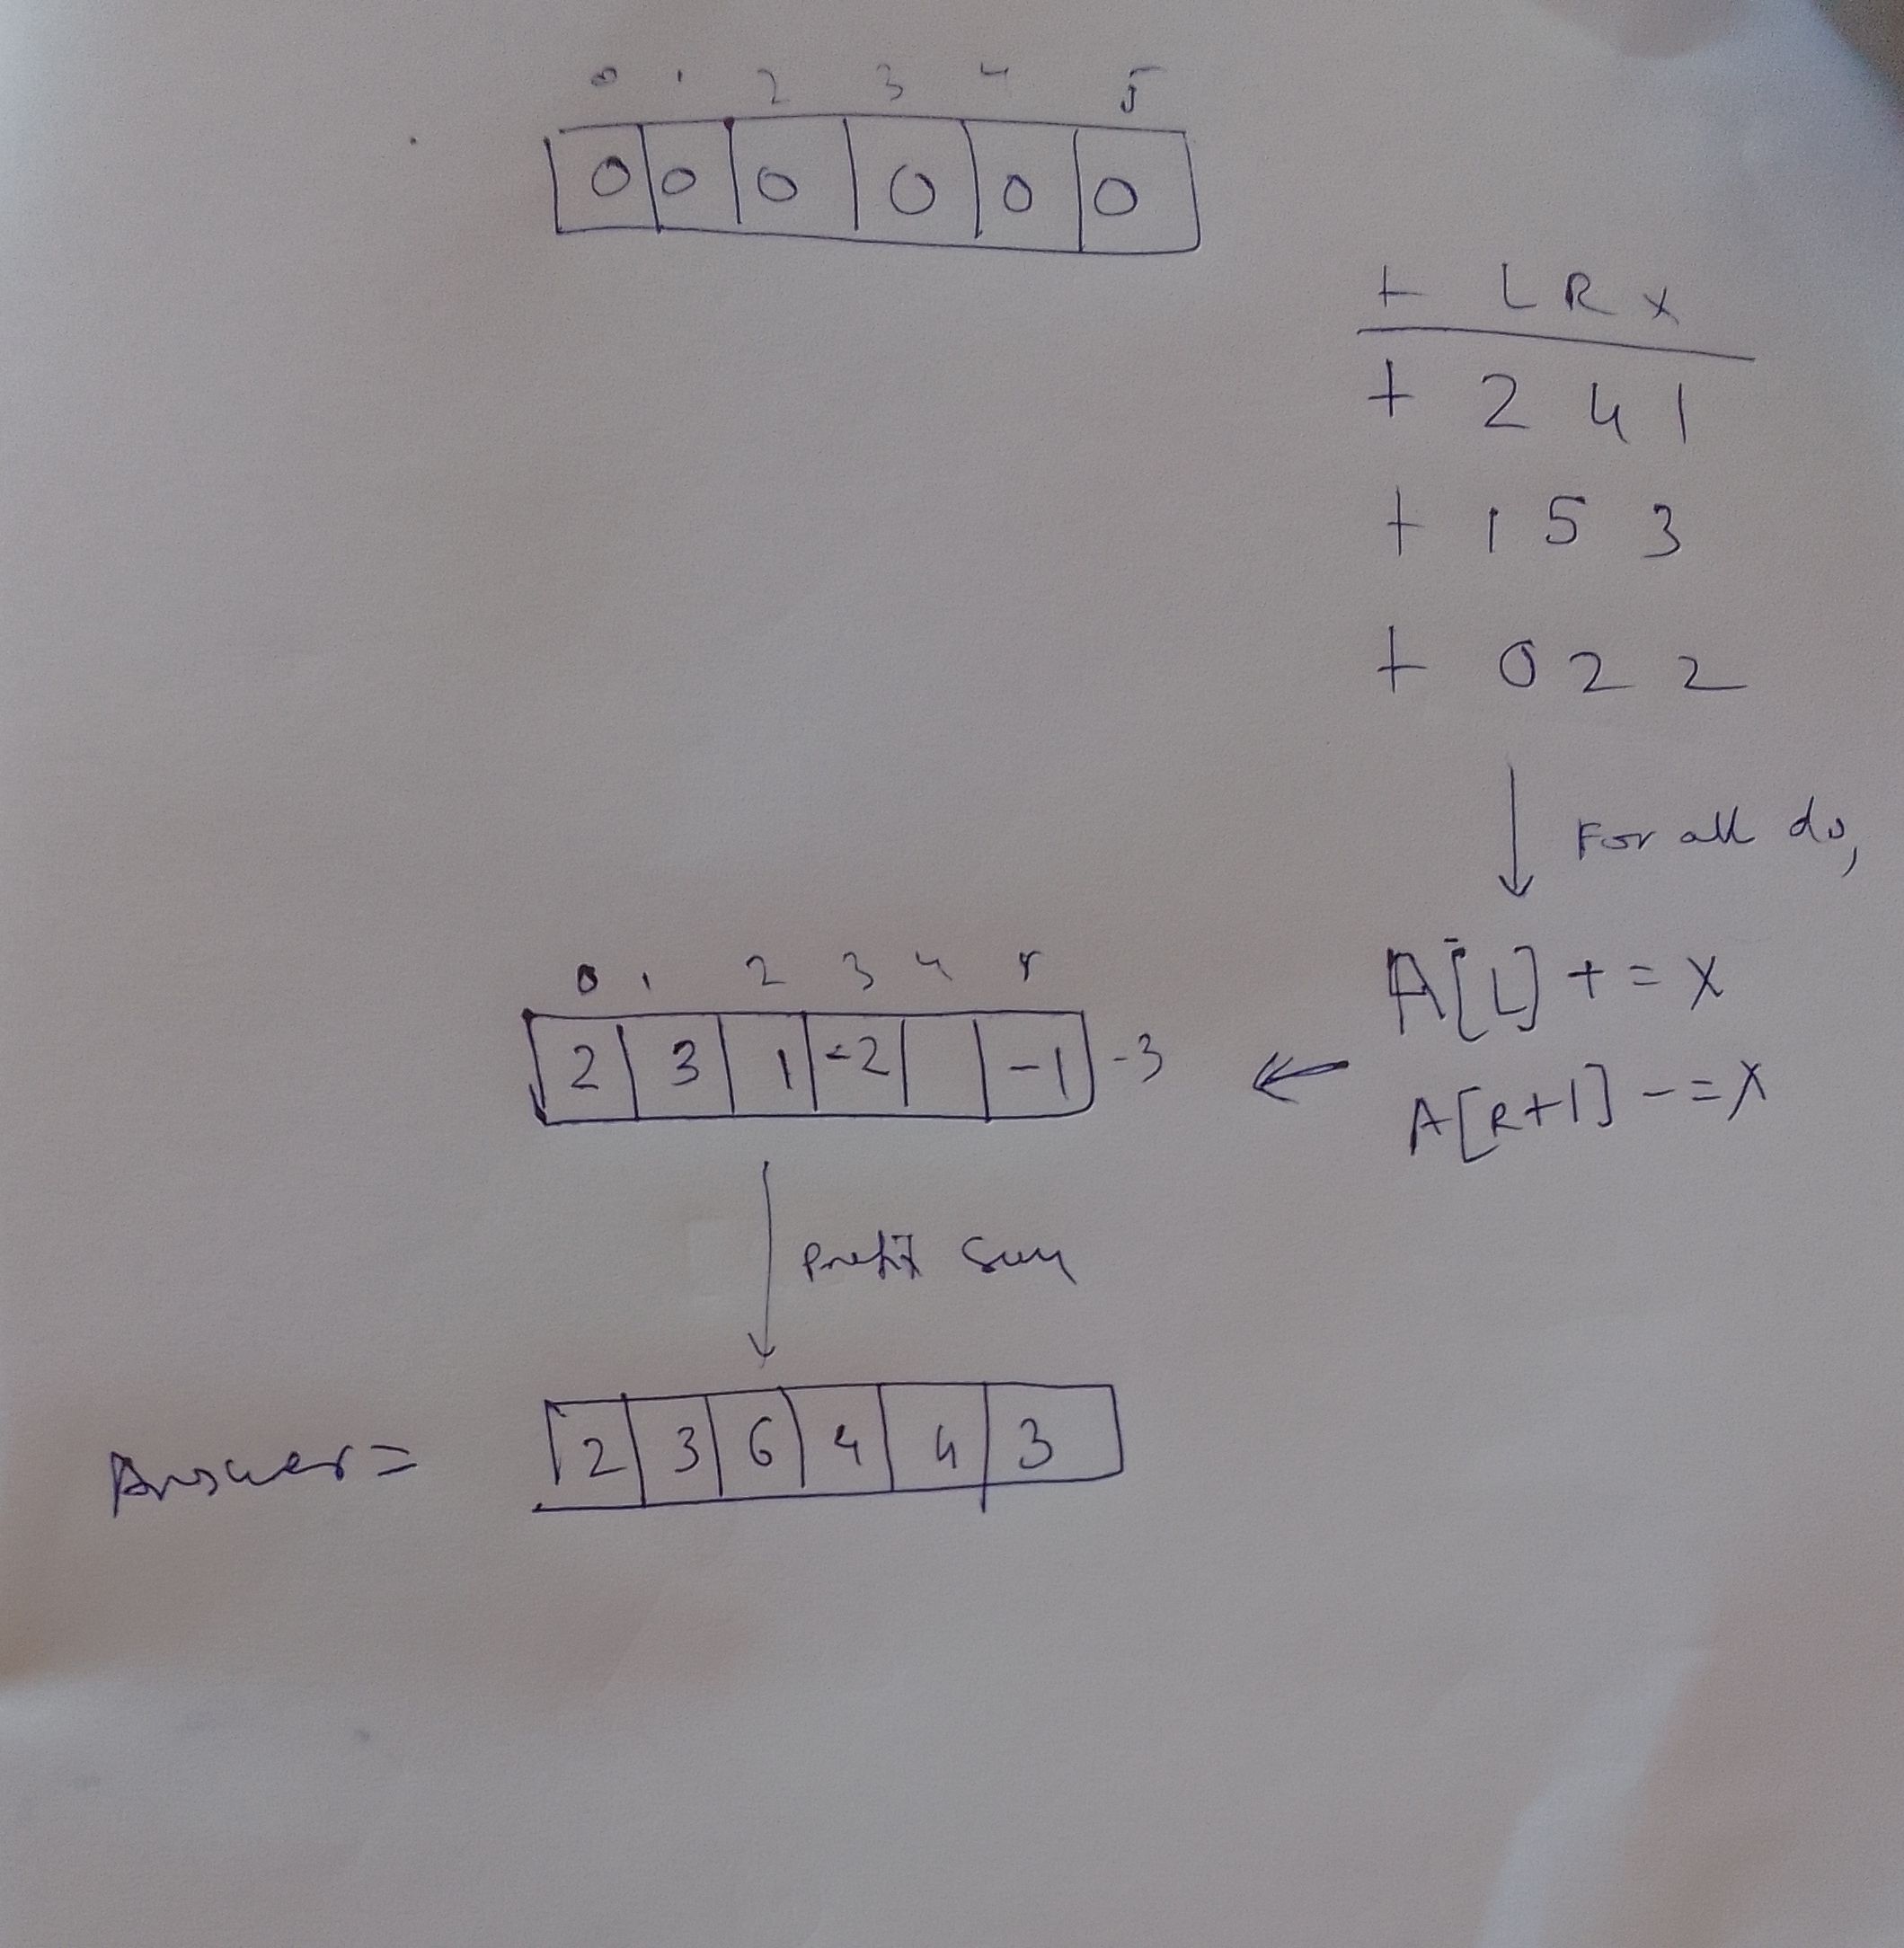 0 1 2 3 4 5
0 0 0 0 0 0
+ L R x
+ 2 4 1
+ 1 5 3
+ 0 2 2
For all do,
A[L] += X
A[R+1] -= X
0 1 2 3 4 5
2 3 1 -2 -1 -3
Prefix Sum
Answer = 2 3 6 4 4 3